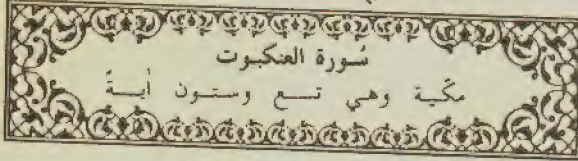 سُورة العنكبوت
مكّية وهي تسع وستون أيةً